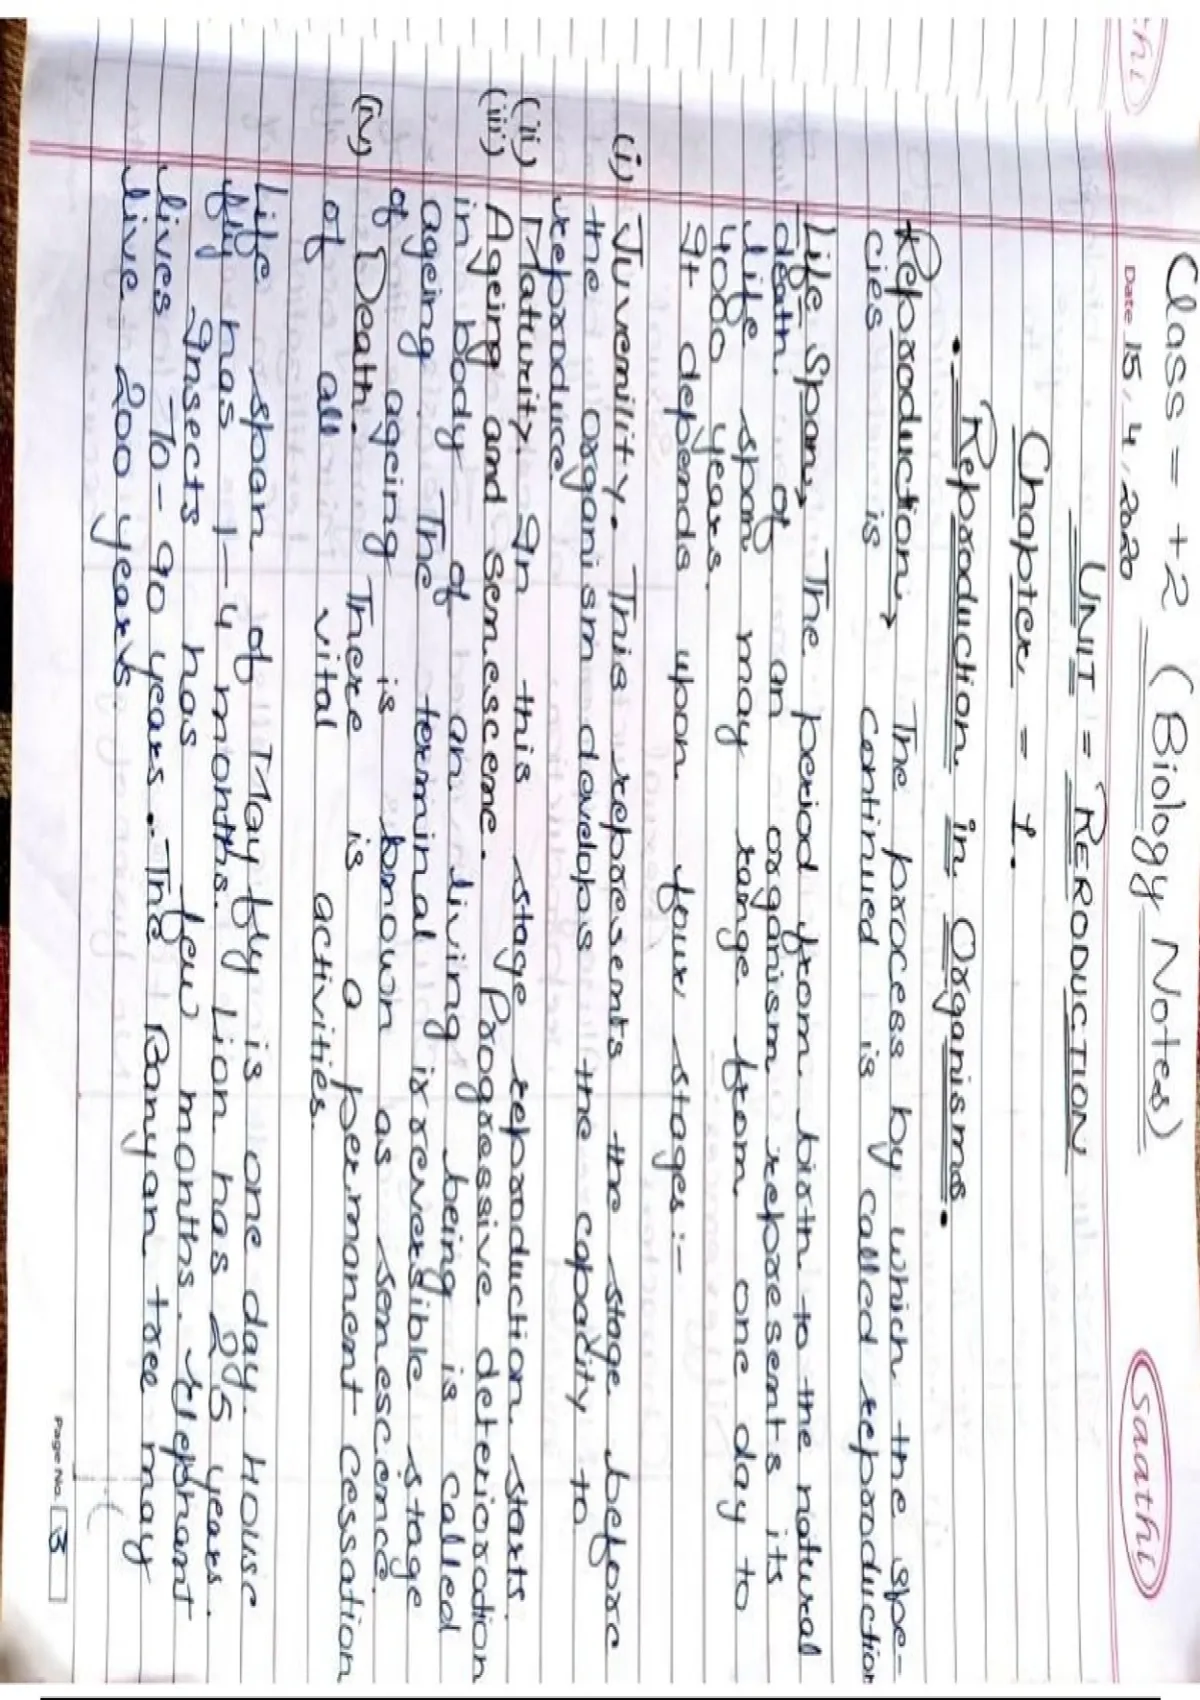 Class = +2 (Biology Notes)
thi
Date 15, 4, 2020
saathi
UNIT = RERODUCTION
Chapter = 1.
• Reproduction in Organisms.
Reproduction, The process by which the spe-
cies is continued is called reproduction
Life Span, The period from birth to the natural
death. of an organism represents its
life span may range from one day to
4080 years.
It depends upon four stages :-
(i) Juvenility. This represents the stage before
the organism develops the capacity to
reproduce.
(ii) Maturity. In this stage reproduction starts.
(iii) Ageing and Senescene. Progressive deterioration
in body of an living being is called
ageing The terminal irreversible stage
of ageing is known as senescence.
(iv) Death. There is a permanent cessation
of all vital activities.
Life span of May fly is one day. House
fly has 1-4 months. Lion has 25 years.
Insects has few months. Elephant
lives 70-90 years. The Banyan tree may
live 200 years
Page No. 3